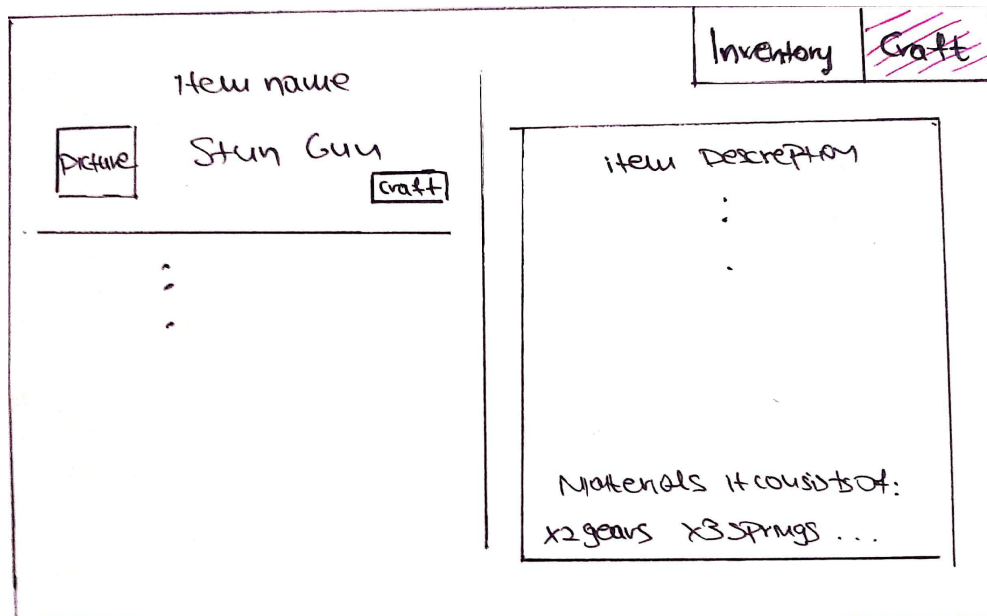 Inventory
Craft
Item name
Picture
Stun Gun
Craft
item Descreption
Materials it consists of:
x2 gears x3 springs ...